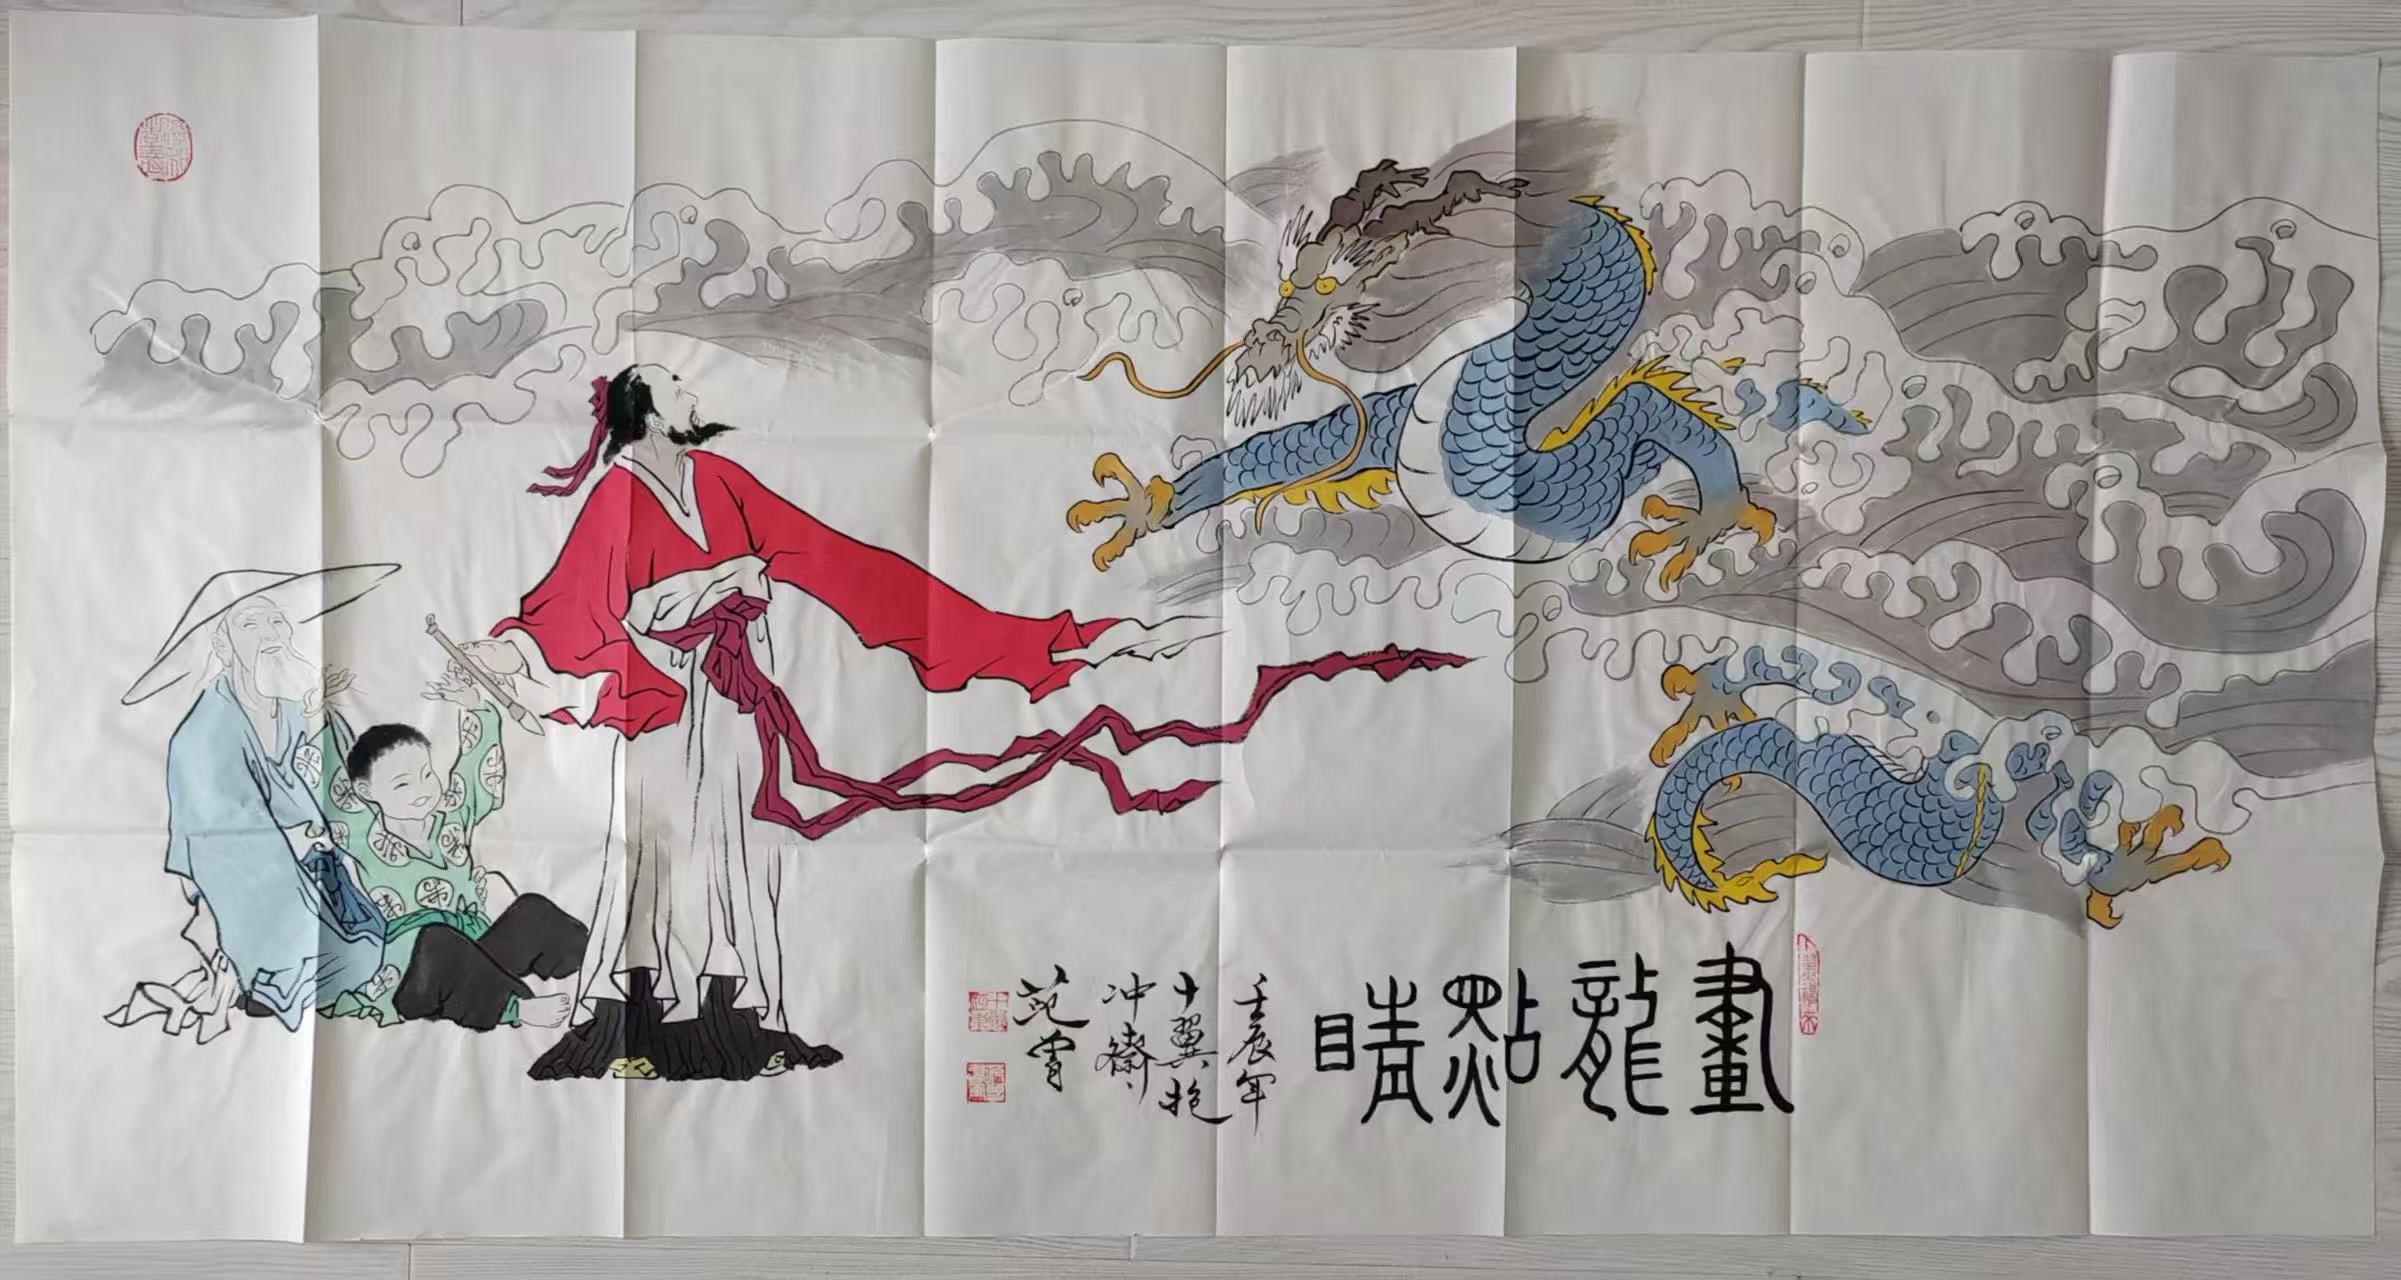 畫龍點睛
壬辰年
十翼抱
冲齋
范曾